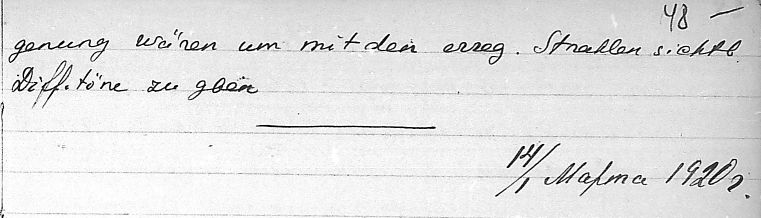 48 —
genung wären um mit den erreg. Strahlen sichtb
Diff. töne zu gben
14/1 Марта 1920г.